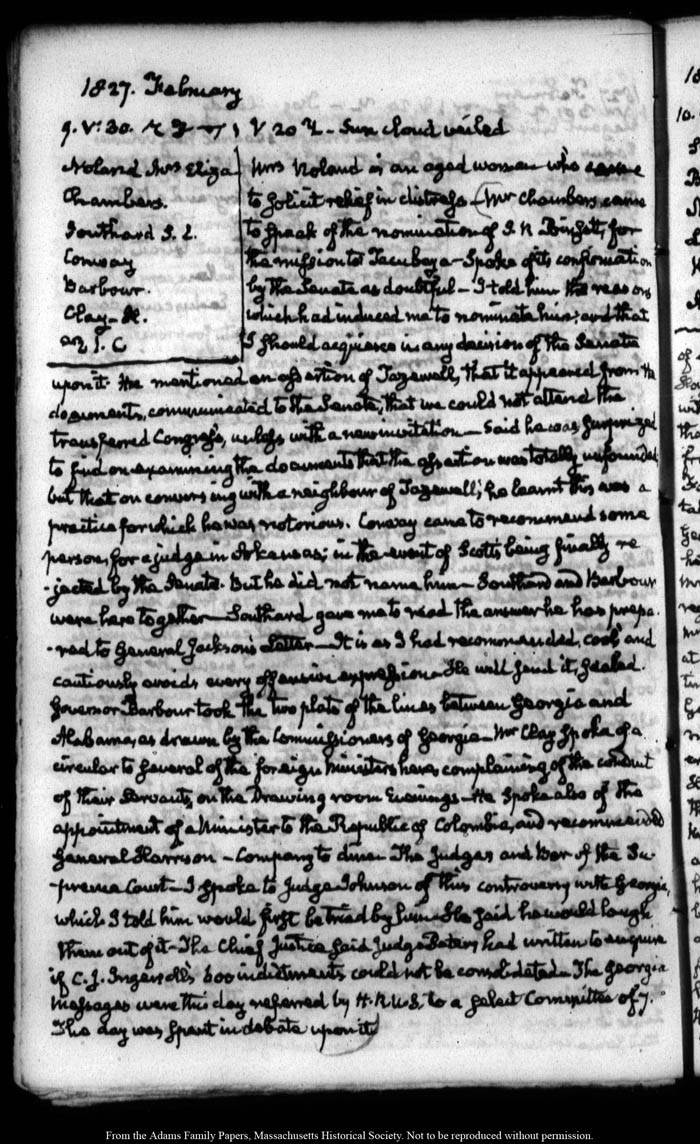 1827. February
9. V: 30. V 20 Sun cloud veiled
Noland Mrs Eliza
Chambers.
Southard S. L.
Conway
Barbour.
Clay. H.
Mrs Noland is an aged woman who came
to solicit relief in distress — Mr Chambers came
to speak of the nomination of J. R. Poinsett, for
the mission to Tacubaya — Spoke of its confirmation
by the Senate as doubtful — I told him the reasons
which had induced me to nominate him; and that
I should acquiesce in any decision of the Senate
upon it. He mentioned an assertion of Tazewell, that it appeared from the
documents, communicated to the Senate, that we could not attend the
transferred Congress, unless with a new invitation — Said he was surprized
to find on examining the documents that the assertion was totally unfounded
but that on conversing with a neighbour of Tazewell; he learnt this was a
practice for which he was notorious. Conway came to recommend some
person, for a judge in Arkansas; in the event of Scott's being finally re
-jected by the Senate. But he did not name him — Southard and Barbour
were here together — Southard gave me to read the answer he has prepa-
-red to General Jackson's Letter — It is as I had recommended, cool and
cautiously avoids every offensive expression — He will send it, sealed.
Governor Barbour took the two plats of the lines between Georgia and
Alabama, as drawn by the Commissioners of Georgia — Mr Clay spoke of a
circular to several of the foreign Ministers here, complaining of the conduct
of their Servants, on the Drawing room Evenings — He spoke also of the
appointment of a Minister to the Republic of Colombia, and recommended
General Harrison — Company to dine. The Judges and Bar of the Su-
-preme Court — I spoke to Judge Johnson of this controversy with Georgia,
which I told him would first be tried by him — He said he would laugh
them out of it — The Chief Justice said Judge Peters had written to enquire
if C. J. Ingersoll's 600 indictments could not be consolidated — The Georgia
messages were this day referred by H.R.U.S. to a select Committee of 7.
The day was spent in debate upon it
From the Adams Family Papers, Massachusetts Historical Society. Not to be reproduced without permission.